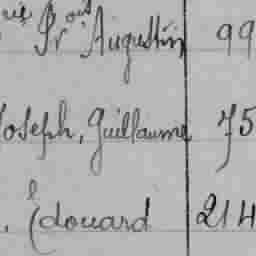 Augustin 99
Joseph, Guillaume 75
. Édouard 214